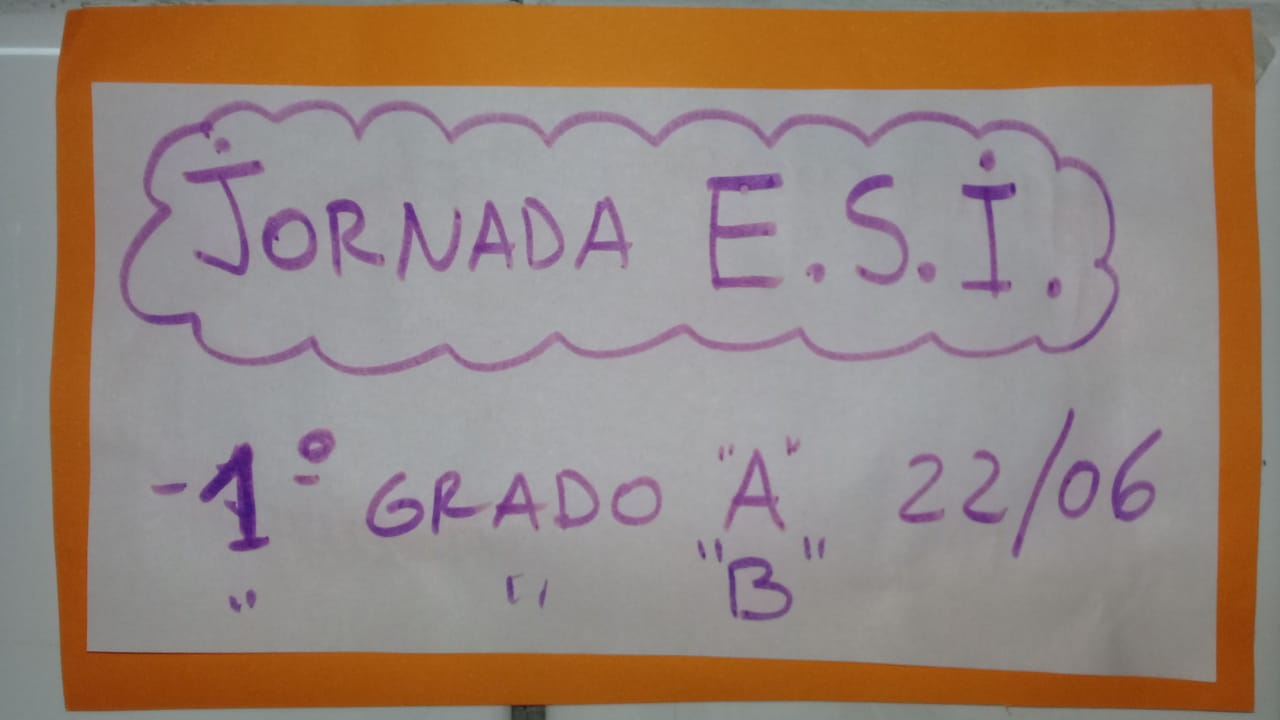 JORNADA E.S.I.
-1º GRADO "A" 22/06
" " "B"